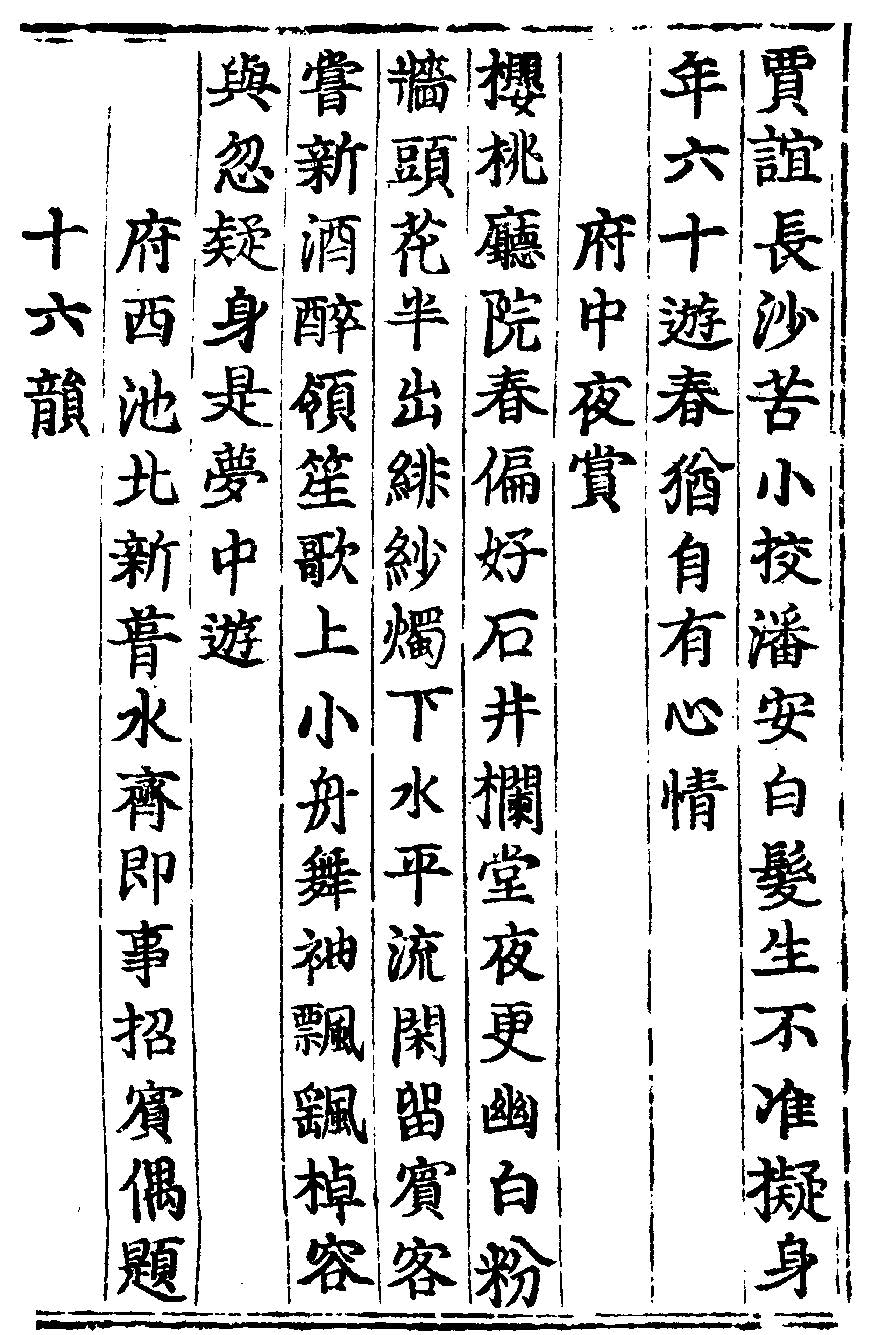 賈誼長沙苦小挍潘安白髮生不准擬身
年六十遊春猶自有心情
府中夜賞
櫻桃廳院春偏好石井欄堂夜更幽白粉
牆頭花半出緋紗燭下水平流閑留賓客
嘗新酒醉領笙歌上小舟舞袖飄颻棹容
與忽疑身是夢中遊
府西池北新葺水齊即事招賓偶題
十六韻